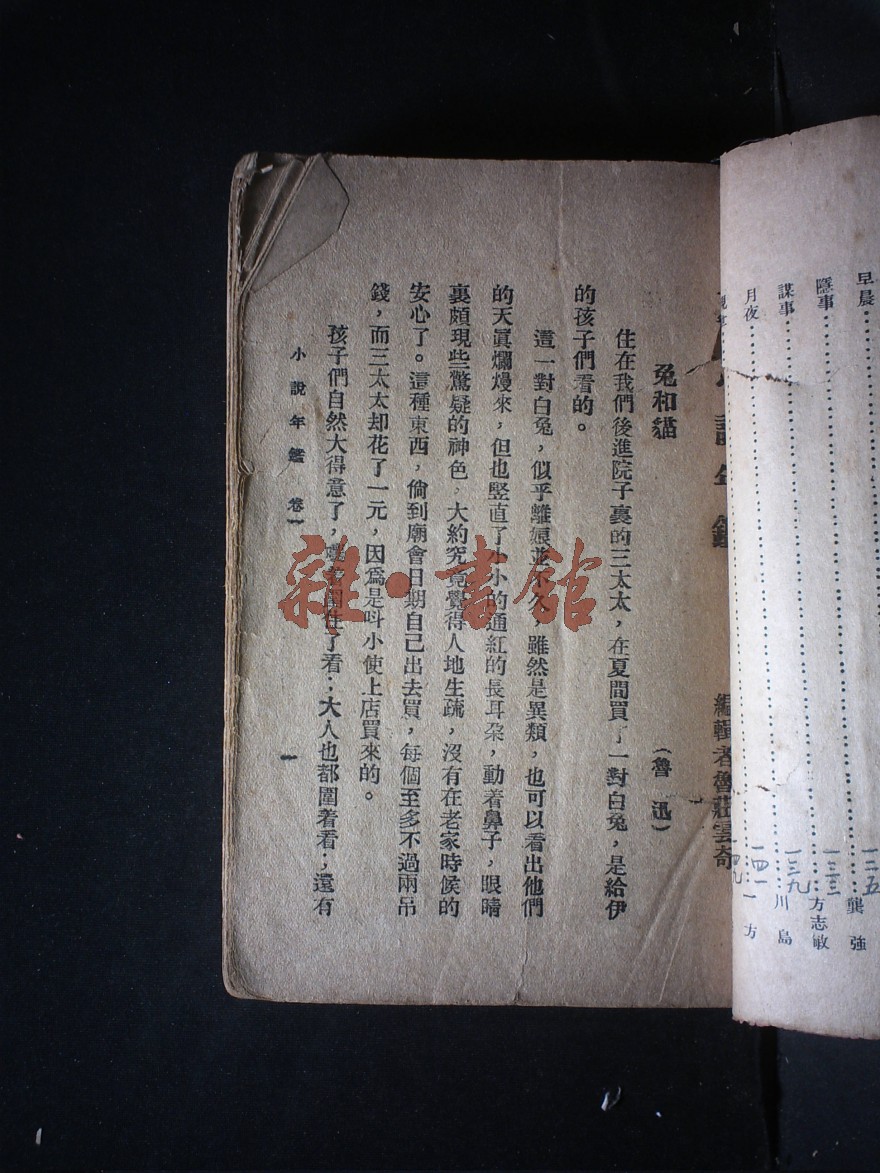 早晨 一二五 龔強
隱事 一三三 方志敏
謀事 一三九 川島
月夜 一四一 一方
一四九
編輯者魯莊雲奇
兔和貓
(魯迅)
住在我們後進院子裏的三太太,在夏間買了一對白兔,是給伊
的孩子們看的。
這一對白兔,似乎離娘並不久,雖然是異類,也可以看出他們
的天眞爛熳來,但也竪直了小小的通紅的長耳朶,動着鼻子,眼睛
裏頗現些驚疑的神色,大約究竟覺得人地生疏,沒有在老家時候的
安心了。這種東西,倘到廟會日期自己出去買,每個至多不過兩吊
錢,而三太太却花了一元,因爲是呌小使上店買來的。
孩子們自然大得意了,嚷着圍住了看;大人也都圍着看;還有
小說年鑑 卷一
一
雜·書館